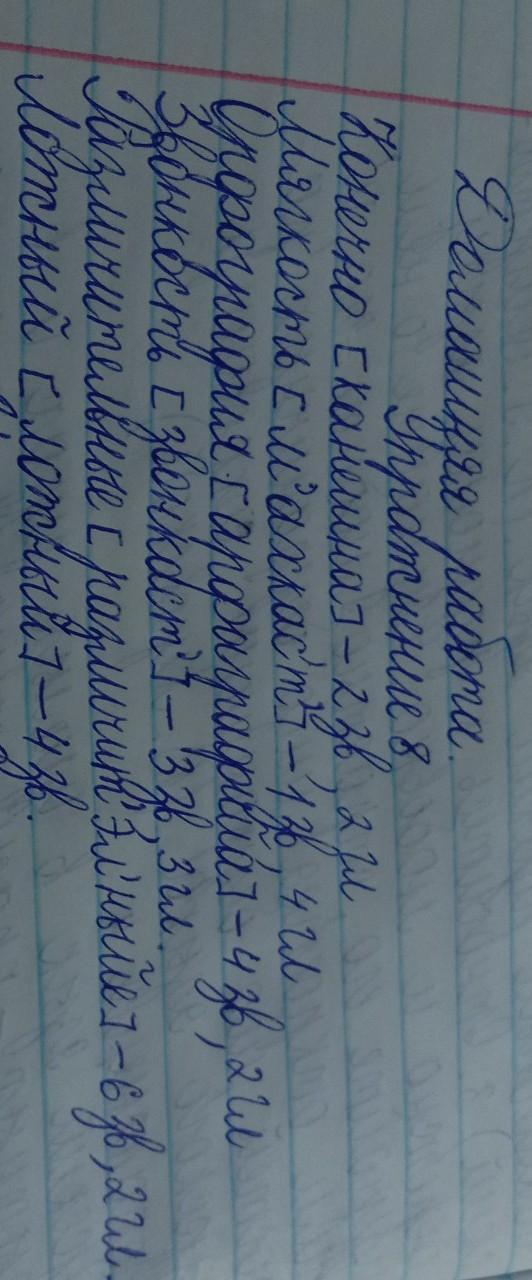 Домашняя работа.
Упражнение 8
Конечно [канешна] - 2 зв, 2 гл
Мягкость [м'ахкаст'] - 1 зв 4 гл
Орфография [арфаграфий'а] - 4 зв, 2 гл
Звонкость [звонкаст'] - 3 зв 3 гл.
Различительные [различит'эл'ный'е] - 6 зв, 2 гл.
Ложный [ложный'] - 4 зв.